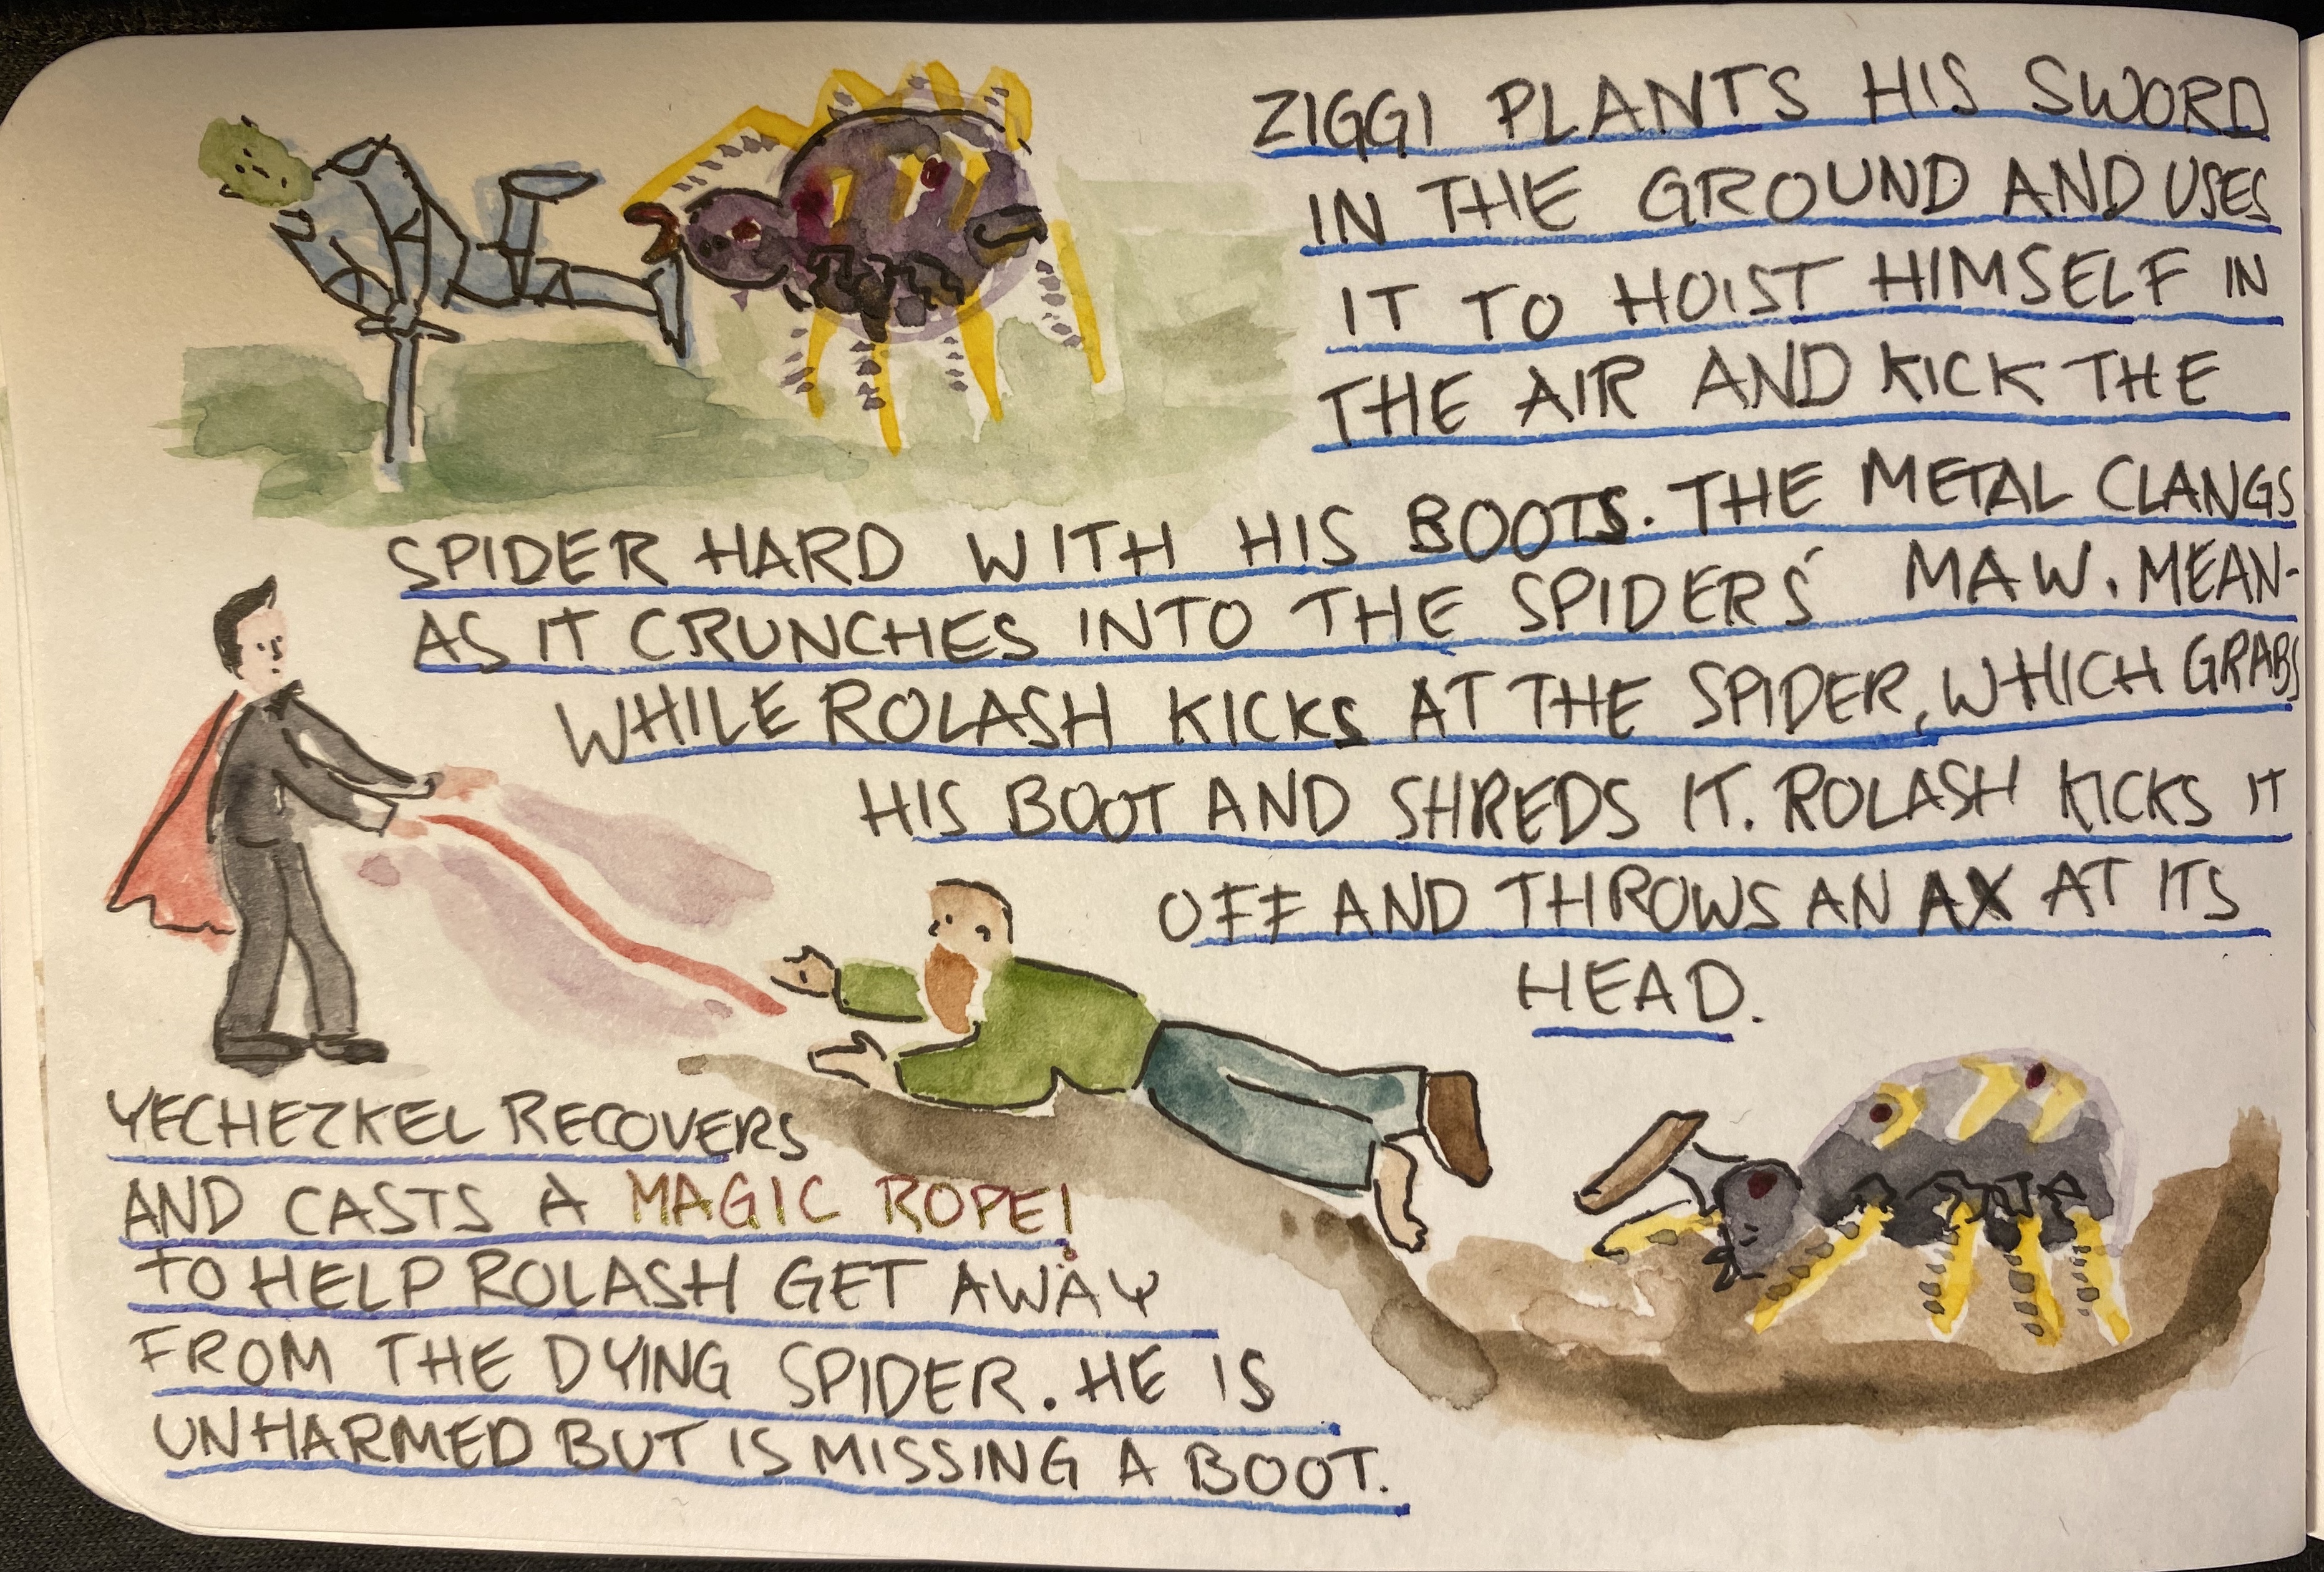 ZIGGI PLANTS HIS SWORD
IN THE GROUND AND USES
IT TO HOIST HIMSELF IN
THE AIR AND KICK THE
SPIDER HARD WITH HIS BOOTS. THE METAL CLANGS
AS IT CRUNCHES INTO THE SPIDERS' MAW. MEAN-
WHILE ROLASH KICKS AT THE SPIDER, WHICH GRABS
HIS BOOT AND SHREDS IT. ROLASH KICKS IT
OFF AND THROWS AN AX AT ITS
HEAD.
YECHEZKEL RECOVERS
AND CASTS A MAGIC ROPE!
TO HELP ROLASH GET AWAY
FROM THE DYING SPIDER. HE IS
UNHARMED BUT IS MISSING A BOOT.